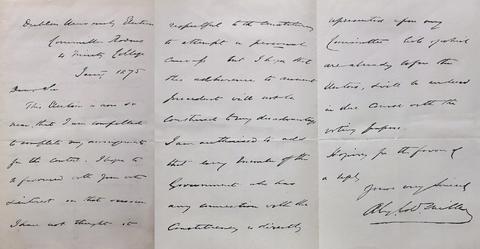 Dublin University Election
Committee Rooms
4 Trinity College
Jany 1875
Dear Sir
This Election is now so
near, that I am compelled
to complete my arrangements
for the contest. I hope to
be favoured with your vote
& interest on that occasion
I have not thought it
respectful to the Constituency
to attempt a personal
canvass but I hope that
this adherence to ancient
precedent will not be
construed to my disadvantage
I am authorised to add
that every Member of the
Government who has
any connection with the
Constituency is directly
represented upon my
Committee lists of which
are already before the
Electors, & will be enclosed
in due course with the
voting papers.
Hoping for the favour of
a reply
Yours very sincerely